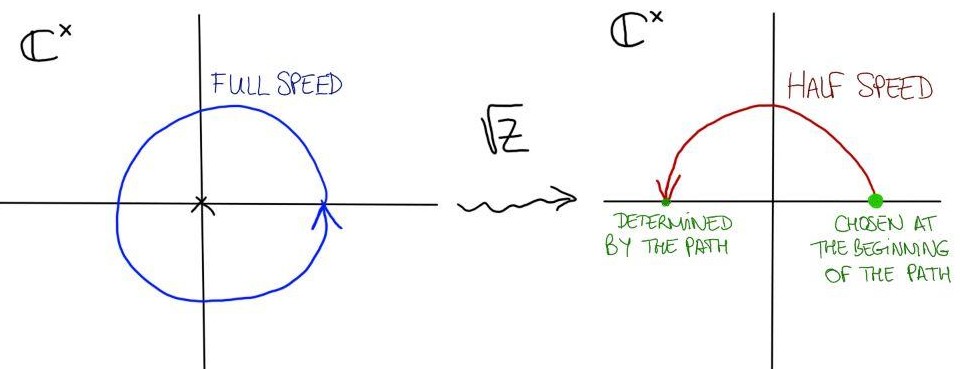 ℂ×
FULL SPEED
√z
ℂ×
HALF SPEED
DETERMINED
BY THE PATH
CHOSEN AT
THE BEGINNING
OF THE PATH